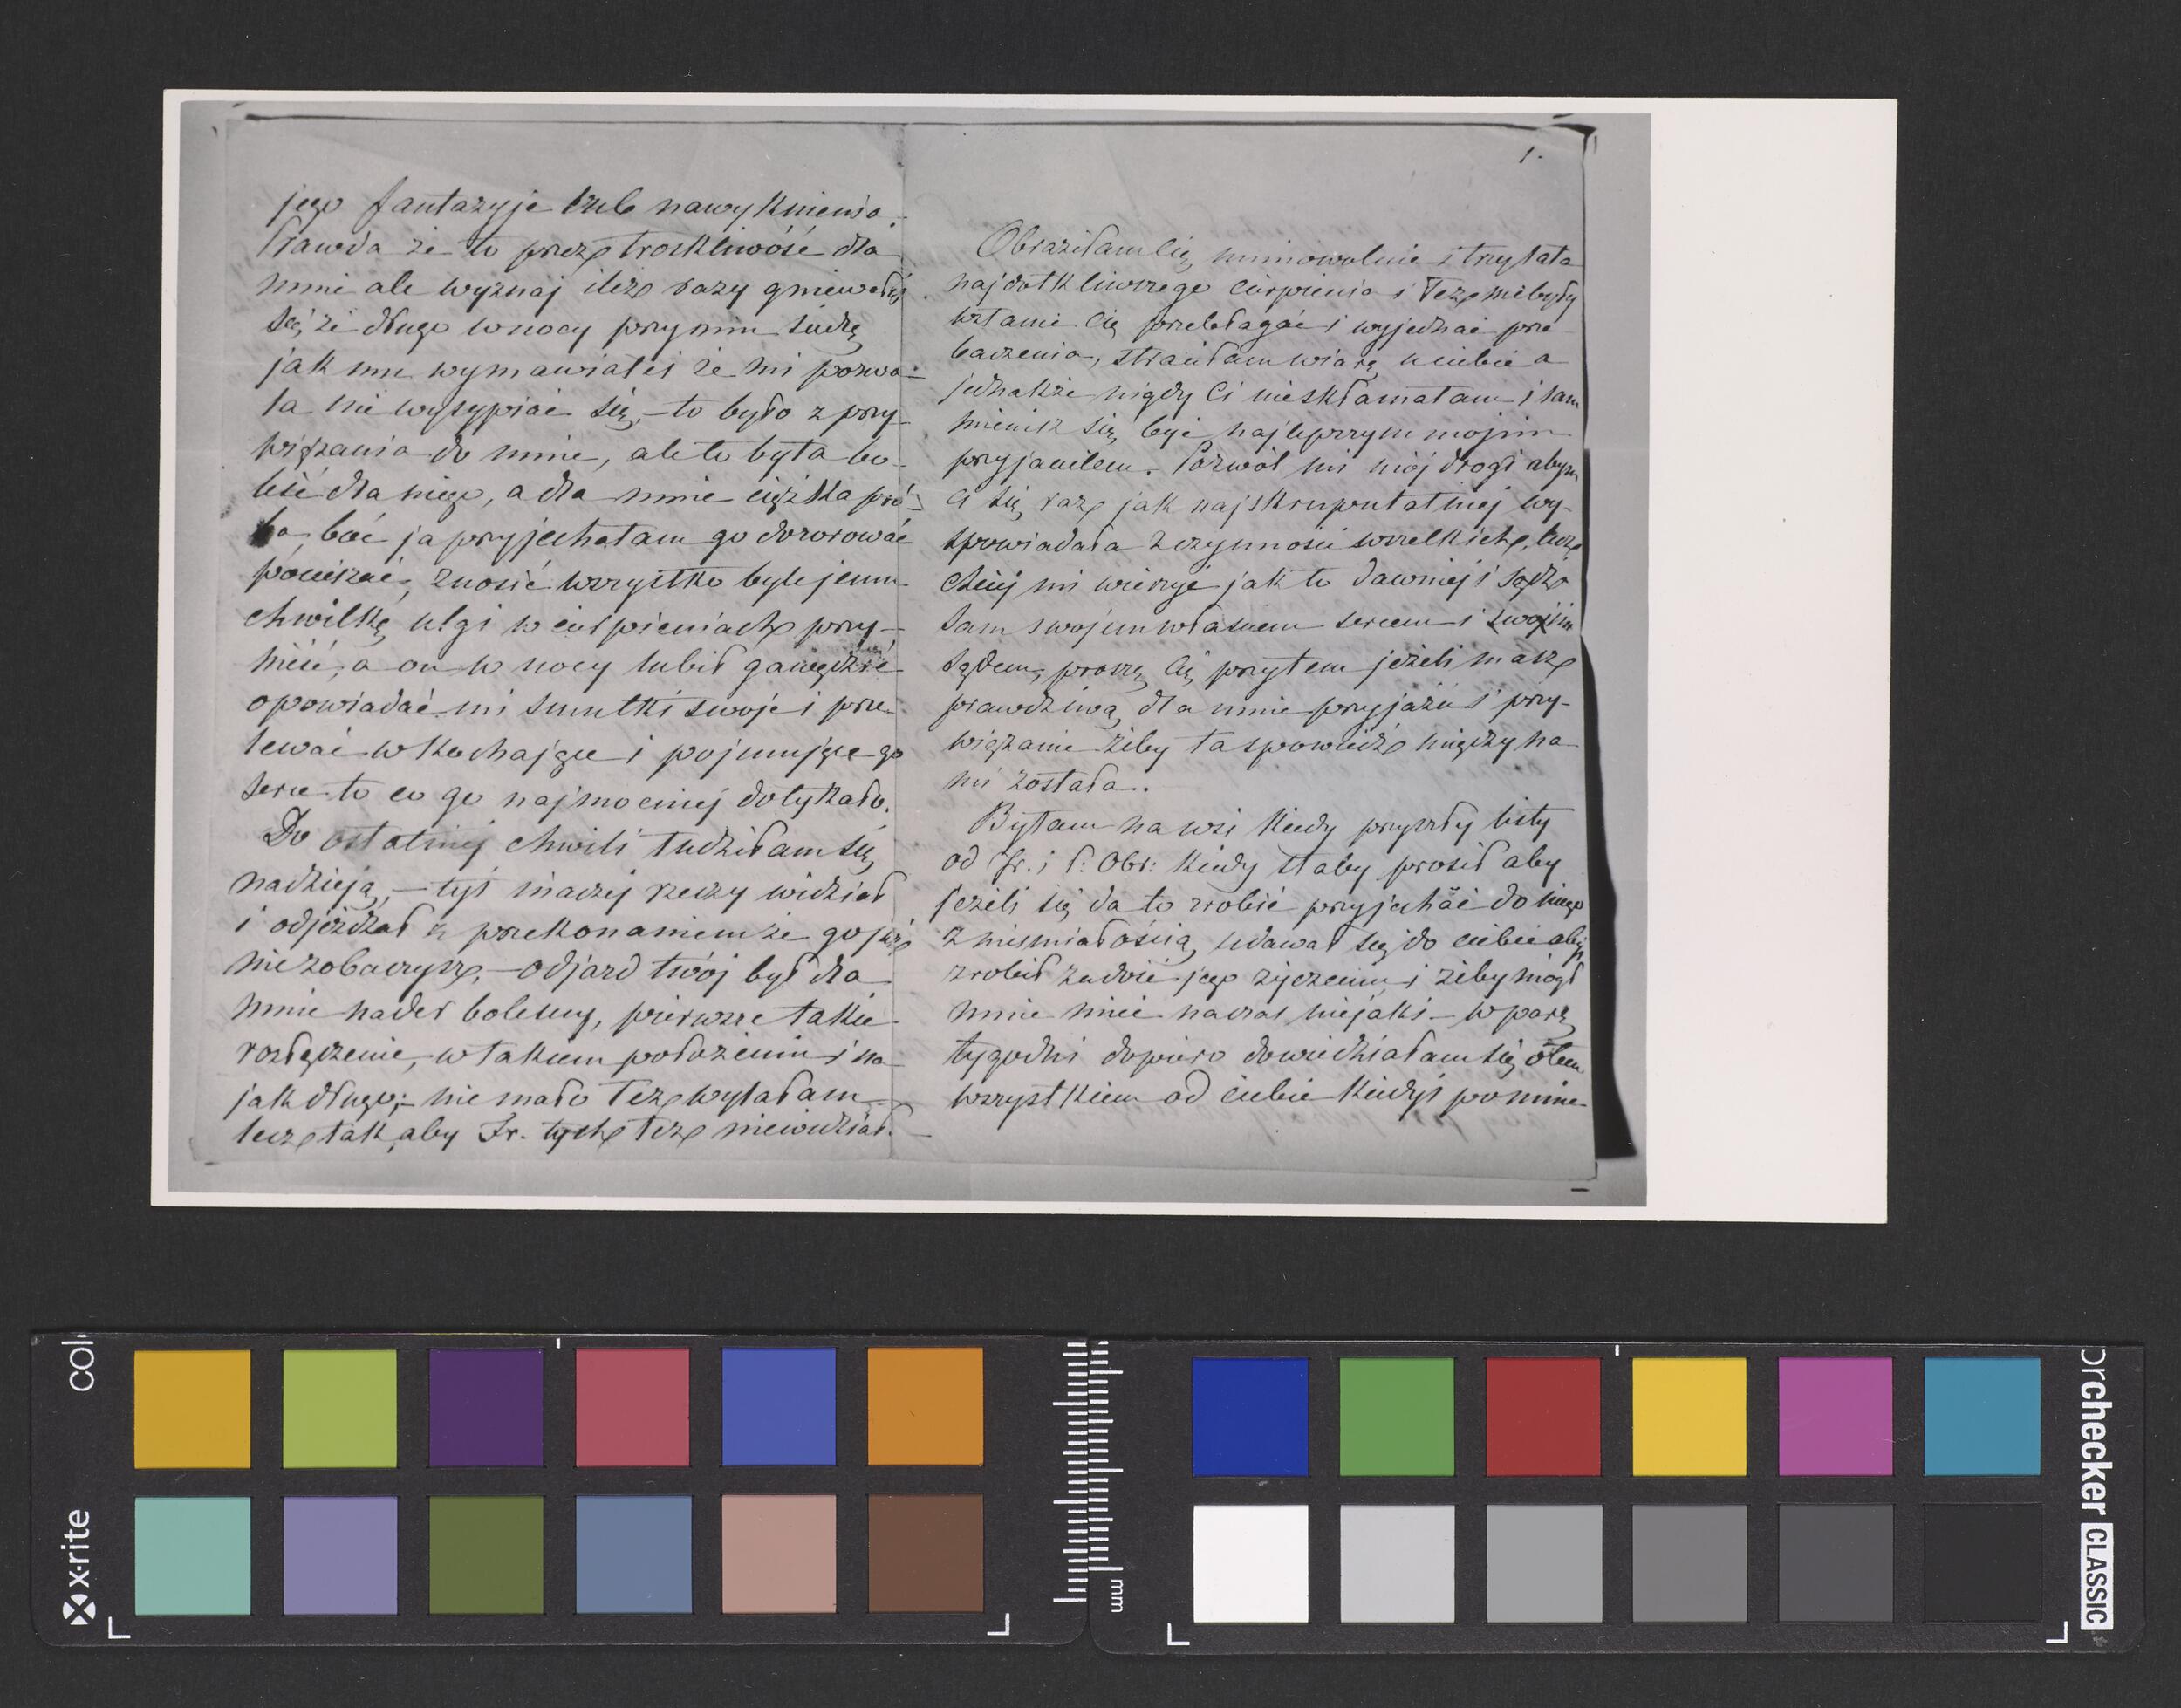 jego fantazyje lub nawyknienia.
Prawda że to przez troskliwość dla
mnie ale wyznaj ileż razy gniewałeś
się, że długo w nocy przy nim siedzę
jak mu wymawiałeś że mi pozwa-
la nie wysypiać się, – to było z przy-
wiązania do mnie, ale to była bo-
leść dla niego, a dla mnie ciężka pró-
ba, boć ja przyjechałam go dozorować
pocieszać, znosić wszystko byle jemu
chwilkę ulgi w cierpieniach przy-
nieść, a on w nocy lubił gawędzić
opowiadać mi smutki swoje i prze-
lewać w kochające i pojmujące go
serce to co go najmocniej dotykało.
Do ostatniej chwili łudziłam się
nadzieją, – tyś inaczej rzeczy widział
i odjeżdżał z przekonaniem że go już
nie zobaczysz, – odjazd twój był dla
mnie nader bolesny, pierwsze takie
rozłączenie, w takiem położeniu i na
jak długo; – nie mało łez wylałam
lecz tak, aby Fr. tych łez niewidział.
1.
Obraziłam Cię, mimowolnie i trzy lata
najdotkliwszego cierpienia i łez nie były
wstanie Cię przebłagać i wyjednać prze
baczenia, straciłam wiarę u ciebie a
jednakże nigdy Ci nieskłamałam i sam
mienisz się być najlepszym mojim
przyjacielem. Pozwól mi mój drogi abym
Ci się raz jak najskrupulatniej wy-
spowiadała z czynności wszelkich, lecz
chciej mi wierzyć jak to dawniej i sądź
sam swojem własnem sercem i swojim
sądem, proszę Cię, przytem jeżeli masz
prawdziwą dla mnie przyjaźń i przy-
wiązanie żeby ta spowiedź między na
mi została..
Byłam na wsi kiedy przyszły listy
od Fr. i P. Obr: kiedy słaby prosił aby
jeżeli się da to zrobić przyjechać do niego
z nieśmiałością, udawał się do ciebie abyś
zrobił zadość jego życzeniu i żeby mógł
mnie mieć na czas niejaki – w parę
tygodni dopiero dowiedziałam się o tem
wszystkiem od ciebie kiedyś po mnie
x-rite
colorchecker CLASSIC
mm